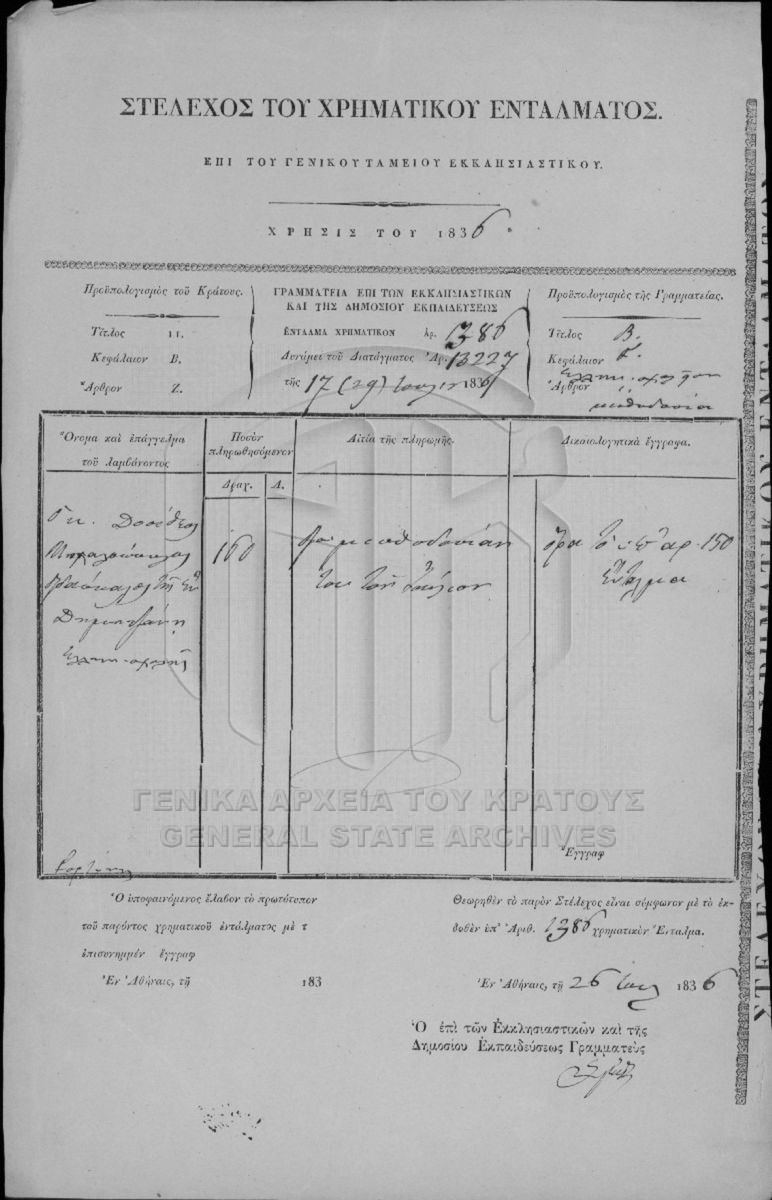 ΣΤΕΛΕΧΟΣ ΤΟΥ ΧΡΗΜΑΤΙΚΟΥ ΕΝΤΑΛΜΑΤΟΣ.
ΕΠΙ ΤΟΥ ΓΕΝΙΚΟΥ ΤΑΜΕΙΟΥ ΕΚΚΛΗΣΙΑΣΤΙΚΟΥ.
ΧΡΗΣΙΣ ΤΟΥ 1836
Προϋπολογισμὸς τοῦ Κράτους.
Τίτλος
Κεφάλαιον Β.
Ἄρθρον Ζ.
ΓΡΑΜΜΑΤΕΙΑ ΕΠΙ ΤΩΝ ΕΚΚΛΗΣΙΑΣΤΙΚΩΝ
ΚΑΙ ΤΗΣ ΔΗΜΟΣΙΟΥ ΕΚΠΑΙΔΕΥΣΕΩΣ
ΕΝΤΑΛΜΑ ΧΡΗΜΑΤΙΚΟΝ ἀρ. 1386
Δυνάμει τοῦ Διατάγματος Ἀρ. 13227
τῆς 17 (29) Ἰουλίου 1836
Προϋπολογισμὸς τῆς Γραμματείας.
Τίτλος Β.
Κεφάλαιον
Ἄρθρον
μισθοδοσία
Ὄνομα καὶ ἐπάγγελμα
τοῦ λαμβάνοντος
Ποσὸν
πληρωθησόμενον
Δραχ. Λ.
Αἰτία τῆς πληρωμῆς.
Δικαιολογητικὰ ἔγγραφα.
Δοσίθεος
διδάσκαλος τῆς ἐν
Δημητζάνῃ
160
μισθοδοσίαν
του τὸν Ἰούλιον
ὅρα τὸ ὑπ' ἀρ. 150
ἔνταλμα
ΓΕΝΙΚΑ ΑΡΧΕΙΑ ΤΟΥ ΚΡΑΤΟΥΣ
GENERAL STATE ARCHIVES
Ἔγγραφ
Ὁ ὑποφαινόμενος ἔλαβον τὸ πρωτότυπον
τοῦ παρόντος χρηματικοῦ ἐντάλματος μὲ τ
ἐπισυνημμέν ἔγγραφ
Ἐν Ἀθήναις, τῇ 183
Θεωρηθὲν τὸ παρὸν Στέλεχος εἶναι σύμφωνον μὲ τὸ ἐκ-
δοθὲν ὑπ' Ἀριθ. 1386 χρηματικὸν Ἔνταλμα.
Ἐν Ἀθήναις, τῇ 26 Ἰουλ 1836
Ὁ ἐπὶ τῶν Ἐκκλησιαστικῶν καὶ τῆς
Δημοσίου Ἐκπαιδεύσεως Γραμματεὺς